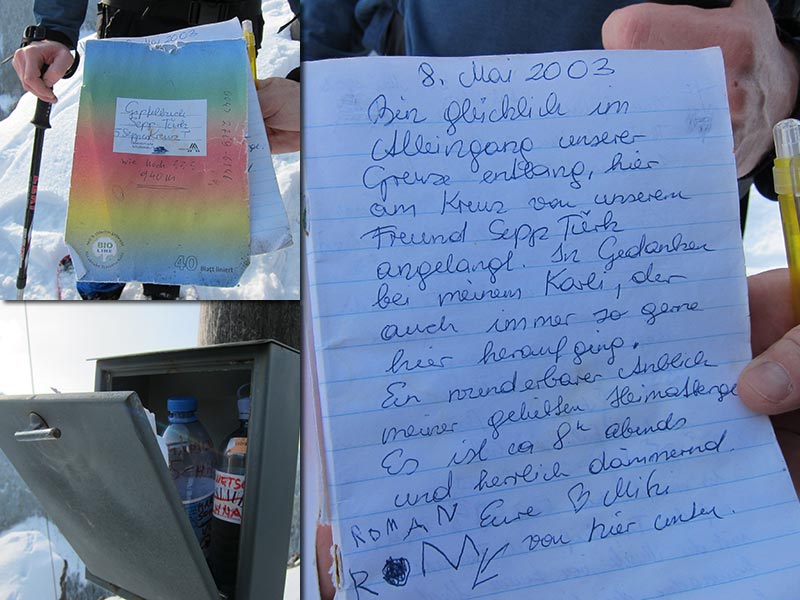 Mai 2003
Gipfelbuch
Sepp Türk
Kreuz
wie hoch
940 m
BIO
LINE
40 Blatt liniert
8. Mai 2003
Bin glücklich im
Alleingang unserer
Grenze entlang, hier
am Kreuz von unserem
Freund Sepp Türk
angelangt. In Gedanken
bei meinem Karli, der
auch immer so gerne
hier herauf ging.
Ein wunderbarer Anblick
meiner geliebten Heimatberge
Es ist ca 8h abends
und herrlich dämmernd.
Eure
von hier unten.
ROMAN
ROM